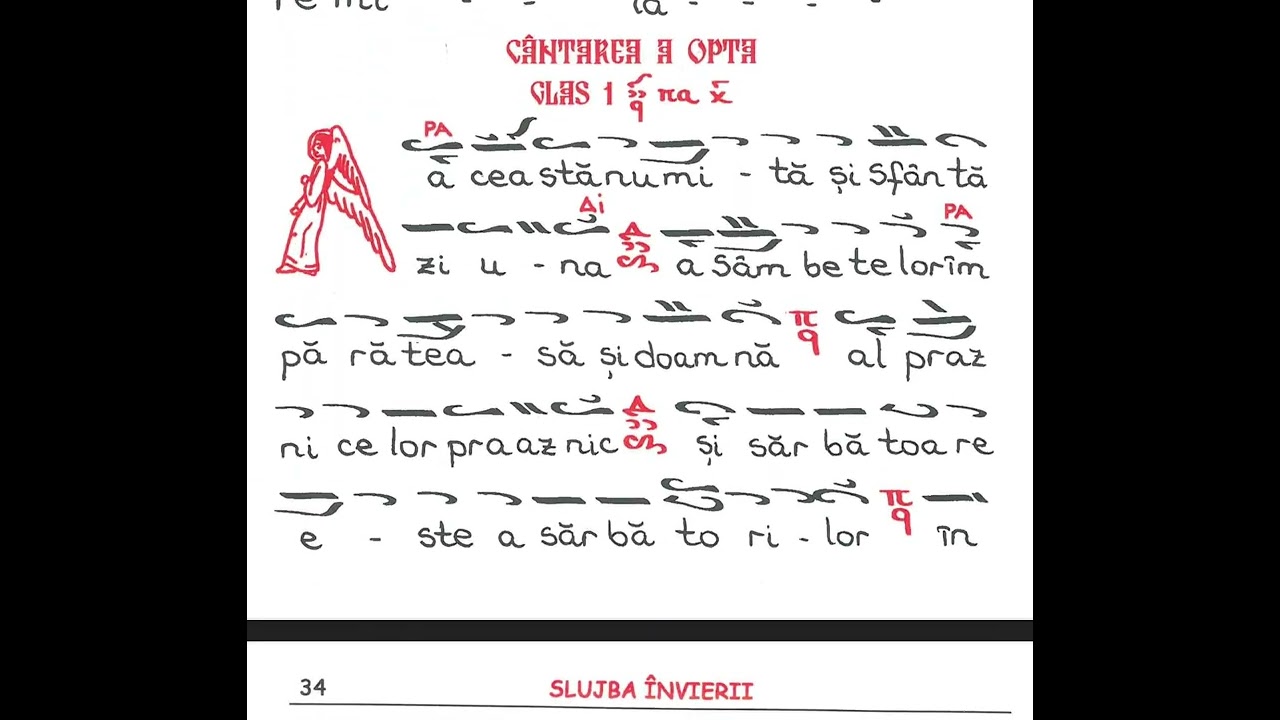 CÂNTAREA A OPTA
GLAS 1 πα χ
ΠΑ
A a ceastănumi - tă și sfântă
Δi ΠΑ
zi u - na a sâm be te lor îm
pă ră tea - să și doam nă al praz
ni ce lor pra az nic și săr bă toa re
e - ste a săr bă to ri - lor în
34 SLUJBA ÎNVIERII